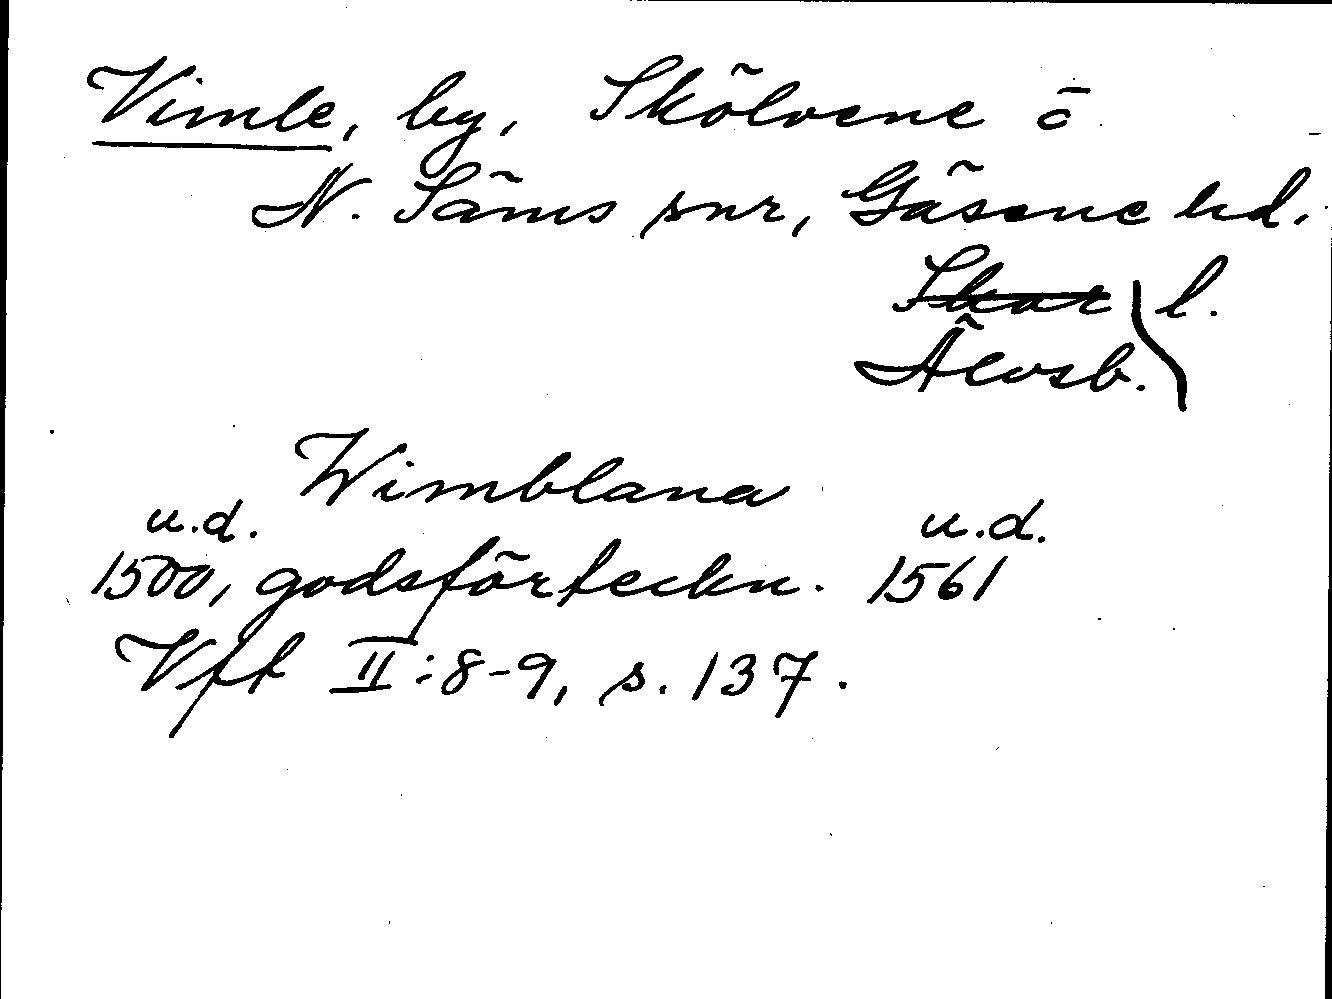 Vimle, by, Skölvene o
N. Säms snr, Gäsene hd.
Skar l.
Älvsb.
Wimblana
u.d. u.d.
1500, godsförteckn. 1561
Vft II:8-9, s. 137.